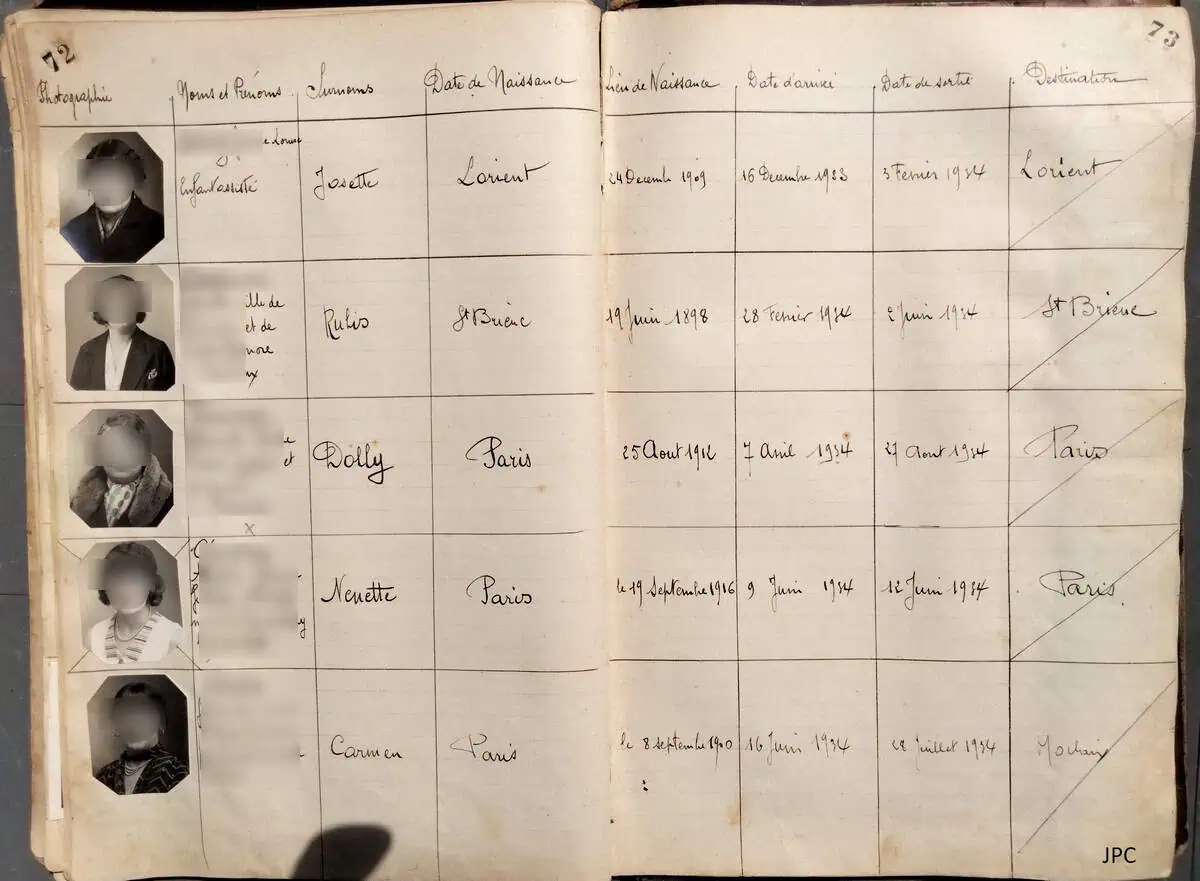 72
73
Photographie Noms et Prénoms Surnoms Date de Naissance Lieu de Naissance Date d'arrivée Date de sortie Destination
e Louise
Enfant assisté Josette Lorient 24 Decembe 1909 16 Decembre 1933 3 Fevrier 1934 Lorient
ille de
et de
nore
x
Rubis St Brieuc 19 Juin 1898 28 Fevrier 1934 2 Juin 1934 St Brieuc
e
et
Dolly Paris 25 Aout 1912 7 Avril 1934 27 Aout 1934 Paris
x
Nenette Paris le 19 Septembre 1916 9 Juin 1934 12 Juin 1934 Paris
y
Carmen Paris le 8 septembre 1900 16 Juin 1934 28 Juillet 1934
JPC